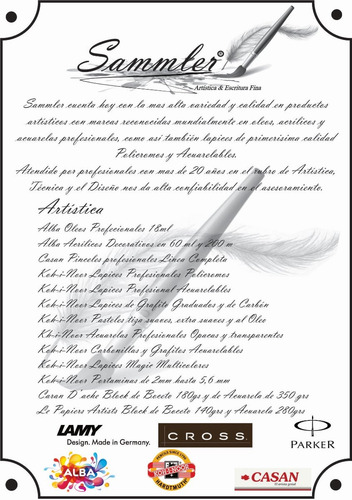 Sammler®
Artística & Escritura Fina
Sammler cuenta hoy con la mas alta variedad y calidad en productos
artísticos con marcas reconocidas mundialmente en oleos, acrílicos y
acuarelas profesionales, como así también lapices de primerísima calidad
Policromos y Acuarelables.
Atendido por profesionales con mas de 20 años en el rubro de Artística,
Técnico y el Diseño nos da alta confiabilidad en el asesoramiento.
Artística
Alba Oleos Profecionales 18ml
Alba Acrílicos Decorativos en 60 ml y 200 m
Casan Pinceles profesionales Línea Completa
Koh-i-Noor Lapices Profesionales Policromos
Koh-i-Noor Lapices Profesional Acuarelables
Koh-i-Noor Lapices de Grafito Graduados y de Carbón
Koh-i-Noor Pasteles tiza suaves, extra suaves y al Oleo
Kh-i-Noor Acuarelas Profesionales Opacas y transparentes
Koh-i-Noor Carbonillas y Grafitos Acuarelables
Koh-i-Noor Lapices Magic Multicolores
Koh-i-Noor Portaminas de 2mm hasta 5,6 mm
Caran D'ache Block de Boceto 180gs y de Acuarela de 350 grs
Le Papiers Artists Block de Boceto 140grs y Acuarela 280grs
LAMY
Design. Made in Germany.
CROSS
PARKER
ALBA
KOH-I-NOOR
HARDTMUTH
CASAN